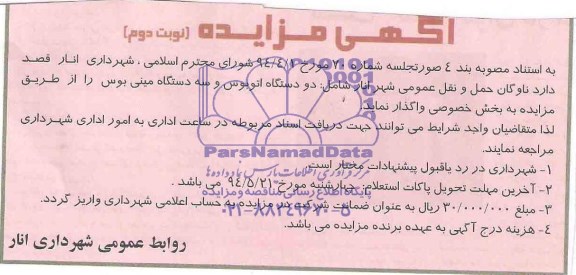 آگهی مزایده (نوبت دوم)
به استناد مصوبه بند ٤ صورتجلسه شماره ٢٠ مورخ ٩٤/٤/٢ شورای محترم اسلامی ، شهرداری انار قصد
دارد ناوگان حمل و نقل عمومی شهر انار شامل: دو دستگاه اتوبوس و سه دستگاه مینی بوس را از طریق
مزایده به بخش خصوصی واگذار نماید.
لذا متقاضیان واجد شرایط می توانند جهت دریافت اسناد مربوطه در ساعت اداری به امور اداری شهرداری
مراجعه نمایند.
ParsNamadData
١- شهرداری در رد یاقبول پیشنهادات مختار است.
٢- آخرین مهلت تحویل پاکات استعلام: چهارشنبه مورخ ٩٤/٥/٢١ می باشد .
پایگاه اطلاع رسانی مناقصه و مزایده
٣- مبلغ ٣٠/٠٠٠/٠٠٠ ریال به عنوان ضمانت شرکت در مزایده به حساب اعلامی شهرداری واریز گردد.
٠٢١-٨٨٣٤٩٦٧٠-٥
٤- هزینه درج آگهی به عهده برنده مزایده می باشد.
روابط عمومی شهرداری انار